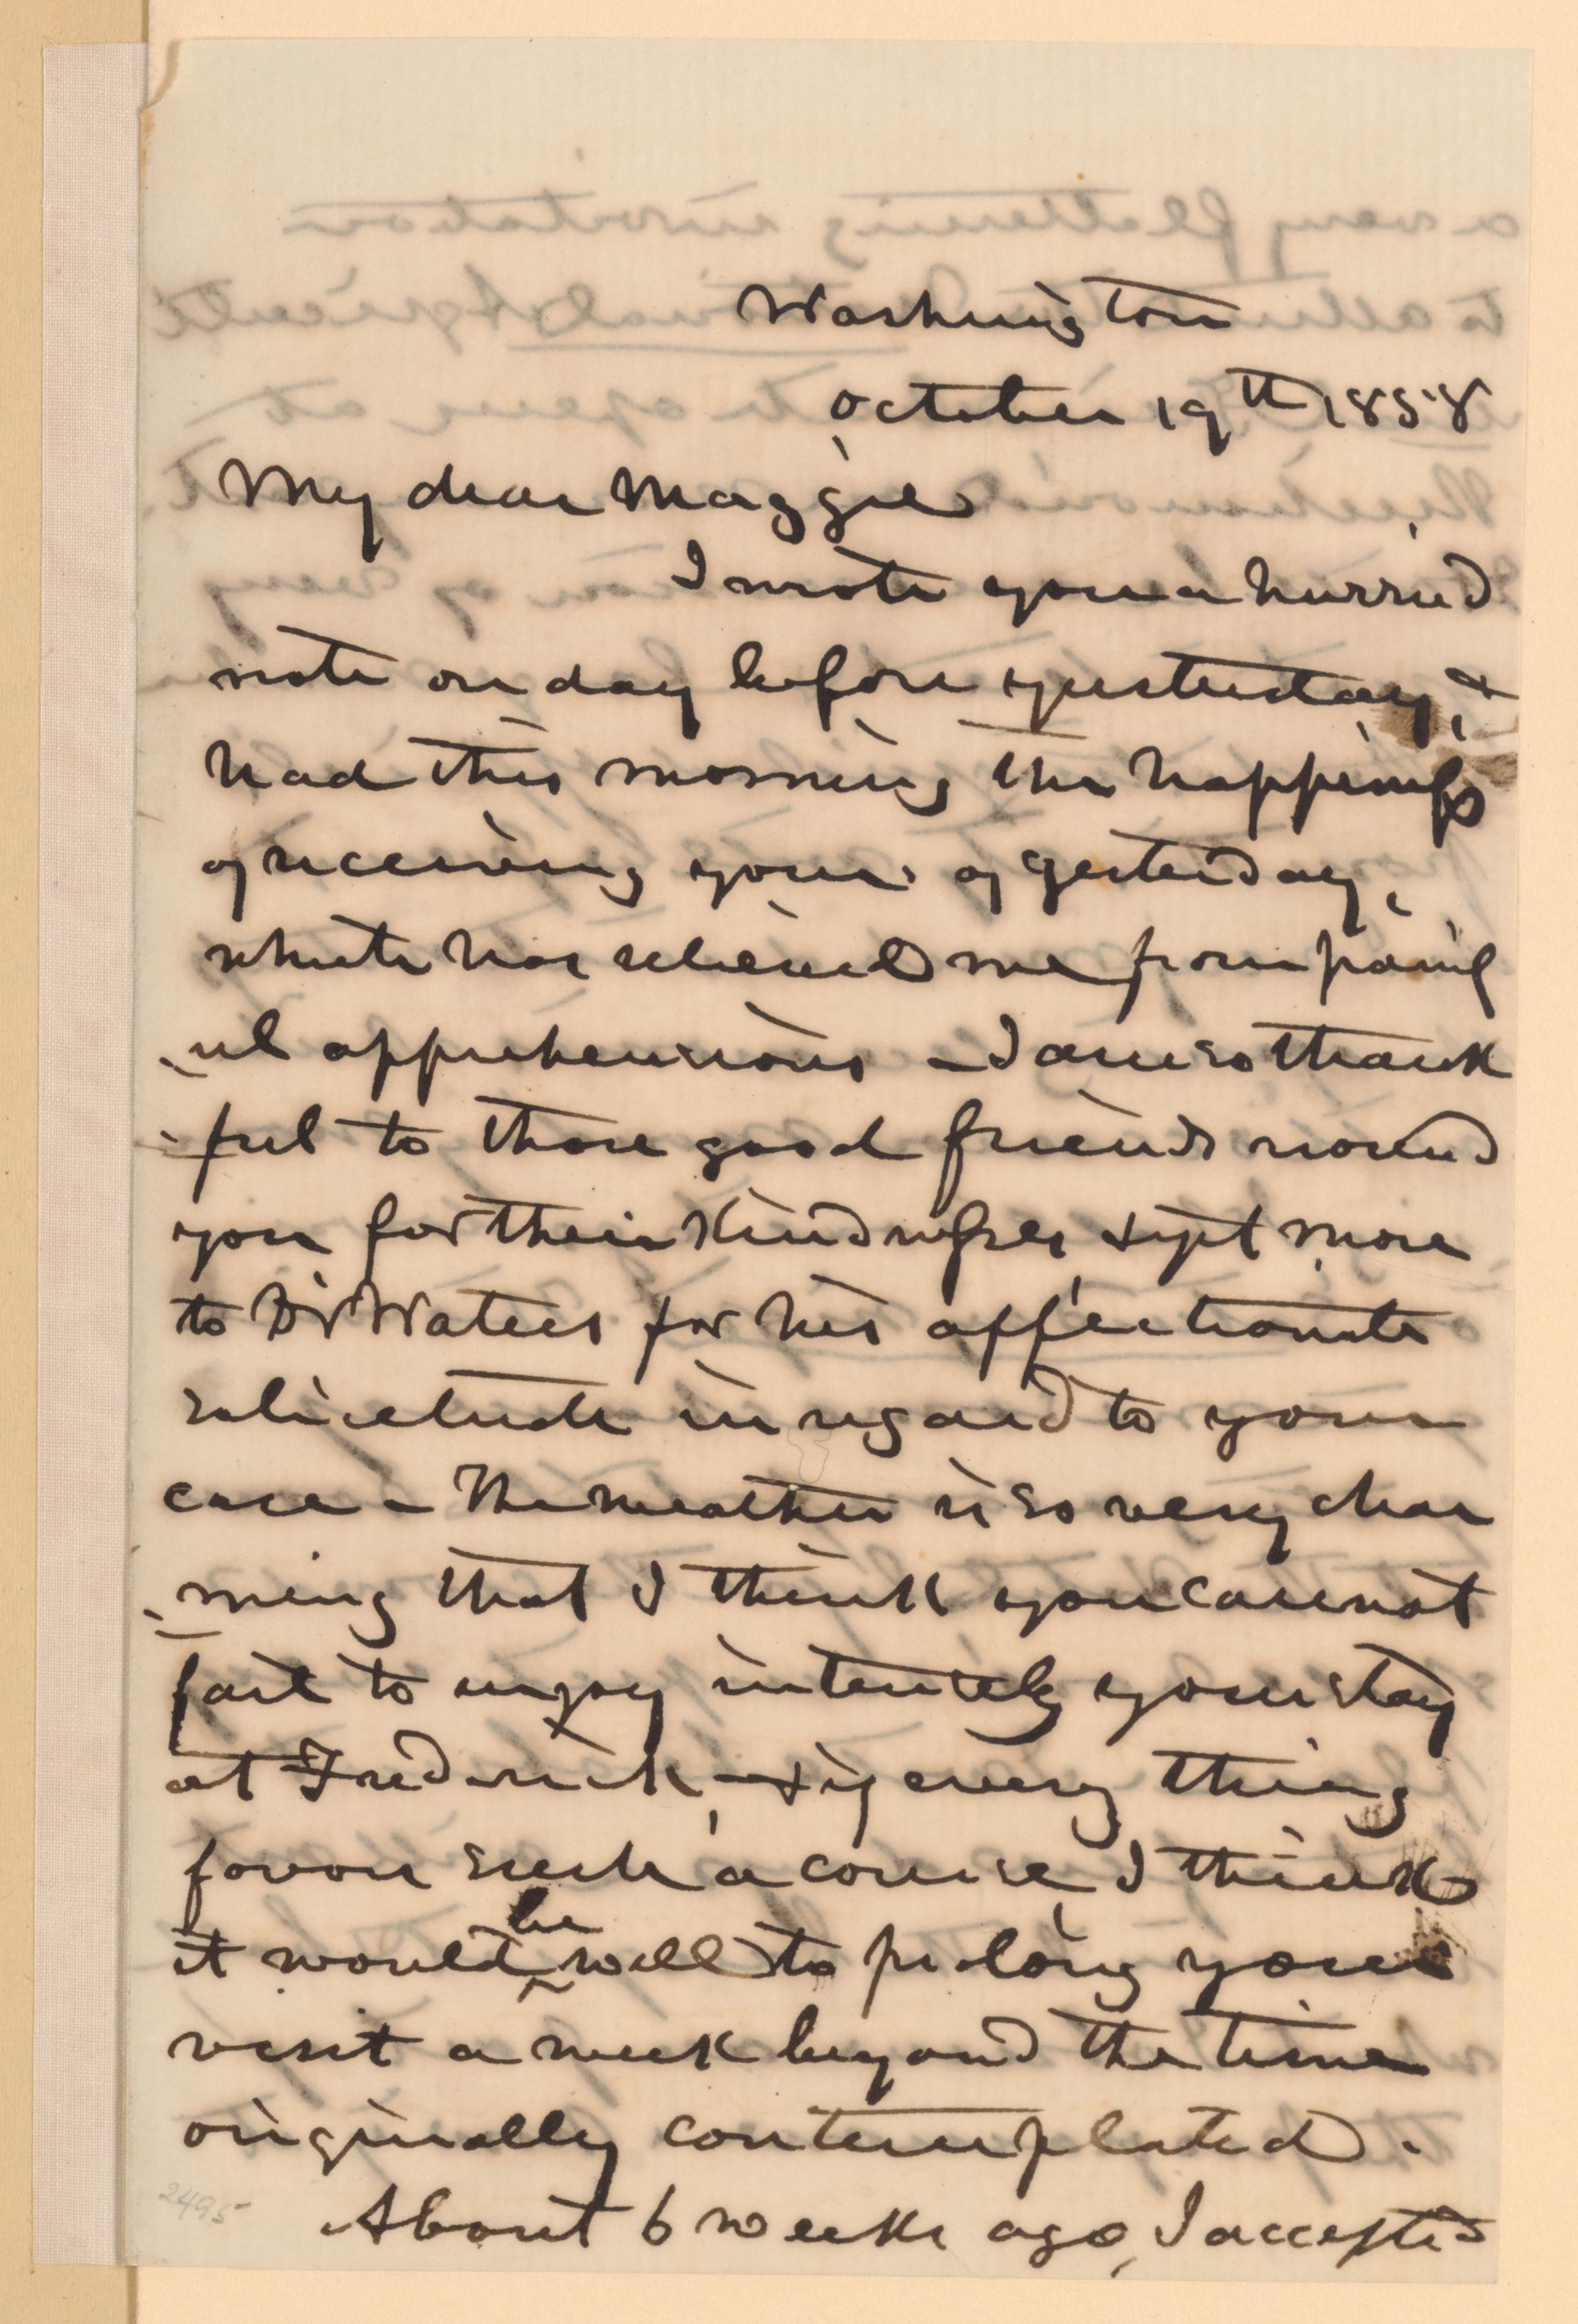 Washington
October 19th 1858
My dear Maggie
I wrote you a hurried
note on day before yesterday, &
had this morning the happiness
of receiving yours of yesterday,
which has relieved me from painf
-ul apprehensions - I am so thank
-ful to those good friends round
you for their kindnesses & yet more
to Dr Waters for his affectionate
solicitude in regard to your
case - The weather is so very char
-ming that I think you cannot
fail to enjoy intensely your stay
at Frederick, - & if every thing
favour such a course, I think
it would be well to prolong your
visit a week beyond the time
originally contemplated.
About 6 weeks ago, I accepted
2495